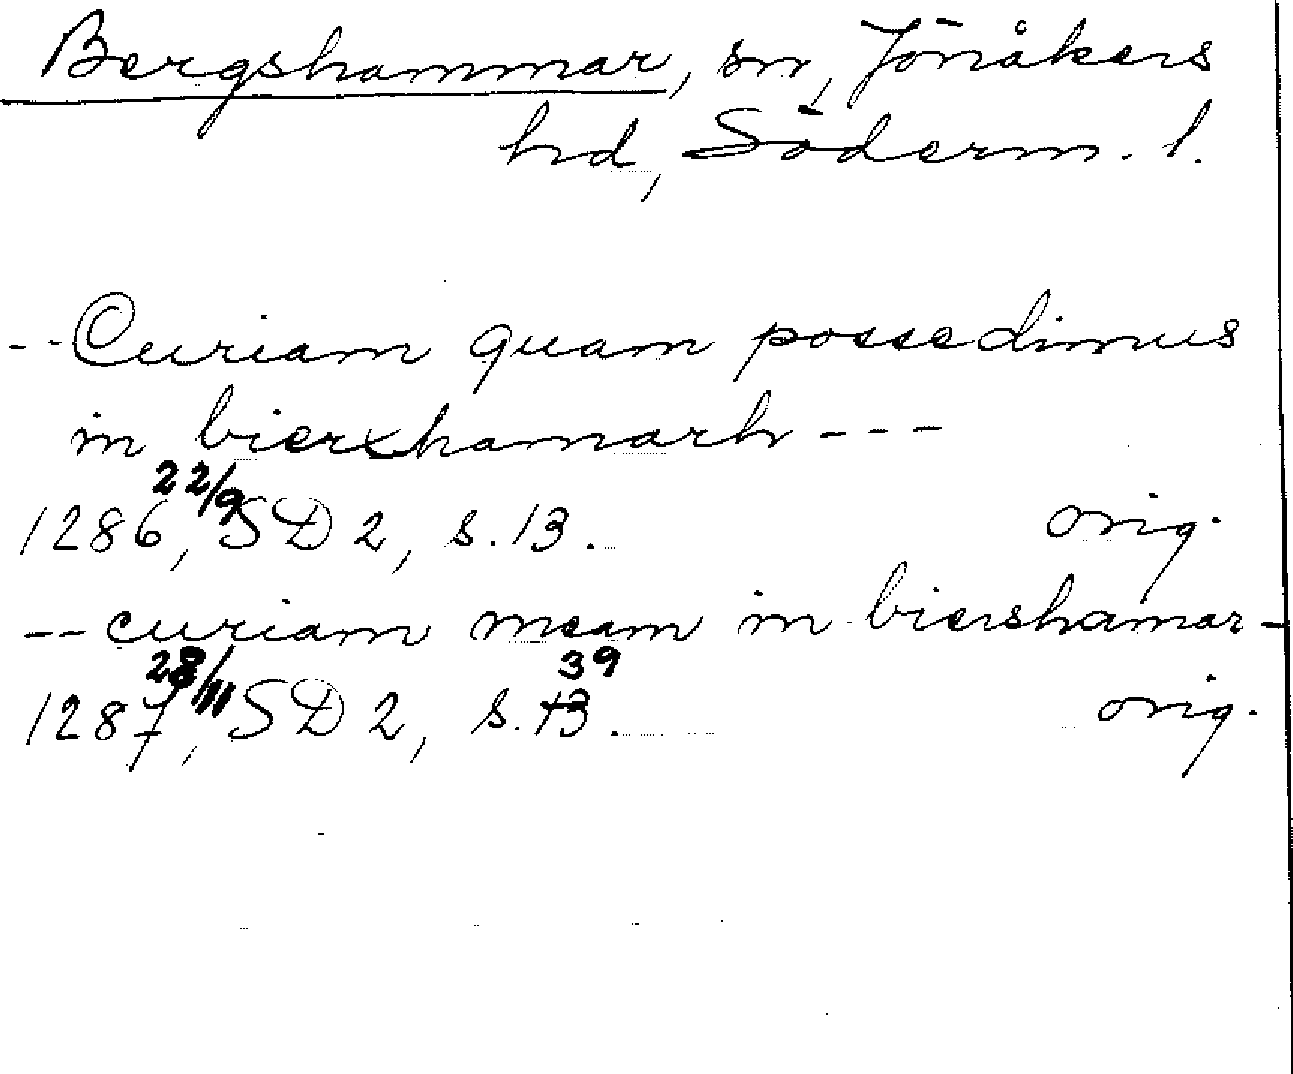 Bergshammar, sn, Jönåkers
hd, Söderm. l.
-- Curiam quam possedimus
in bierxhamarh ---
1286 22/9, SD 2, s. 13. orig.
-- curiam meam in biershamar -
1287 28/11, SD 2, s. 13. 39 orig.